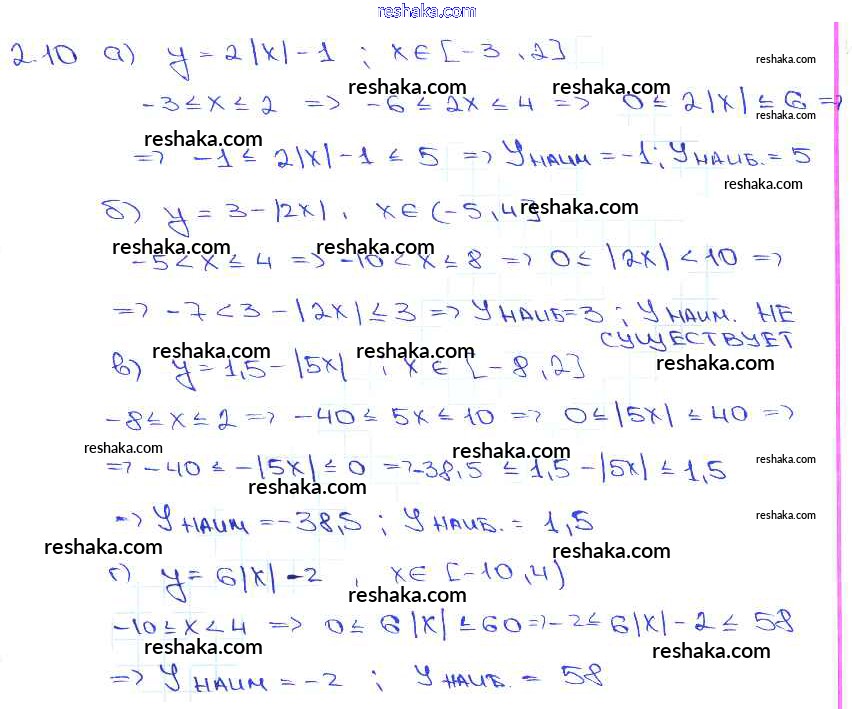 reshaka.com
2.10 а) y = 2|x| - 1 ; x ∈ [-3, 2]
reshaka.com
reshaka.com reshaka.com
-3 ≤ x ≤ 2 => -6 ≤ 2x ≤ 4 => 0 ≤ 2|x| ≤ 6 =>
reshaka.com
reshaka.com
=> -1 ≤ 2|x| - 1 ≤ 5 => y наим = -1; y наиб. = 5
reshaka.com
б) y = 3 - |2x|, x ∈ (-5, 4] reshaka.com
reshaka.com reshaka.com
-5 < x ≤ 4 => -10 < x ≤ 8 => 0 ≤ |2x| < 10 =>
=> -7 < 3 - |2x| ≤ 3 => y наиб = 3 ; y наим. не
существует
reshaka.com reshaka.com
reshaka.com
в) y = 1,5 - |5x| , x ∈ [-8, 2]
-8 ≤ x ≤ 2 => -40 ≤ 5x ≤ 10 => 0 ≤ |5x| ≤ 40 =>
reshaka.com
reshaka.com reshaka.com
=> -40 ≤ -|5x| ≤ 0 => -38,5 ≤ 1,5 - |5x| ≤ 1,5
reshaka.com
=> y наим = -38,5 ; y наиб. = 1,5
reshaka.com
reshaka.com reshaka.com
г) y = 6|x| - 2 , x ∈ [-10, 4)
reshaka.com
-10 ≤ x < 4 => 0 ≤ 6|x| ≤ 60 => -2 ≤ 6|x| - 2 ≤ 58
reshaka.com reshaka.com
=> y наим = -2 ; y наиб. = 58